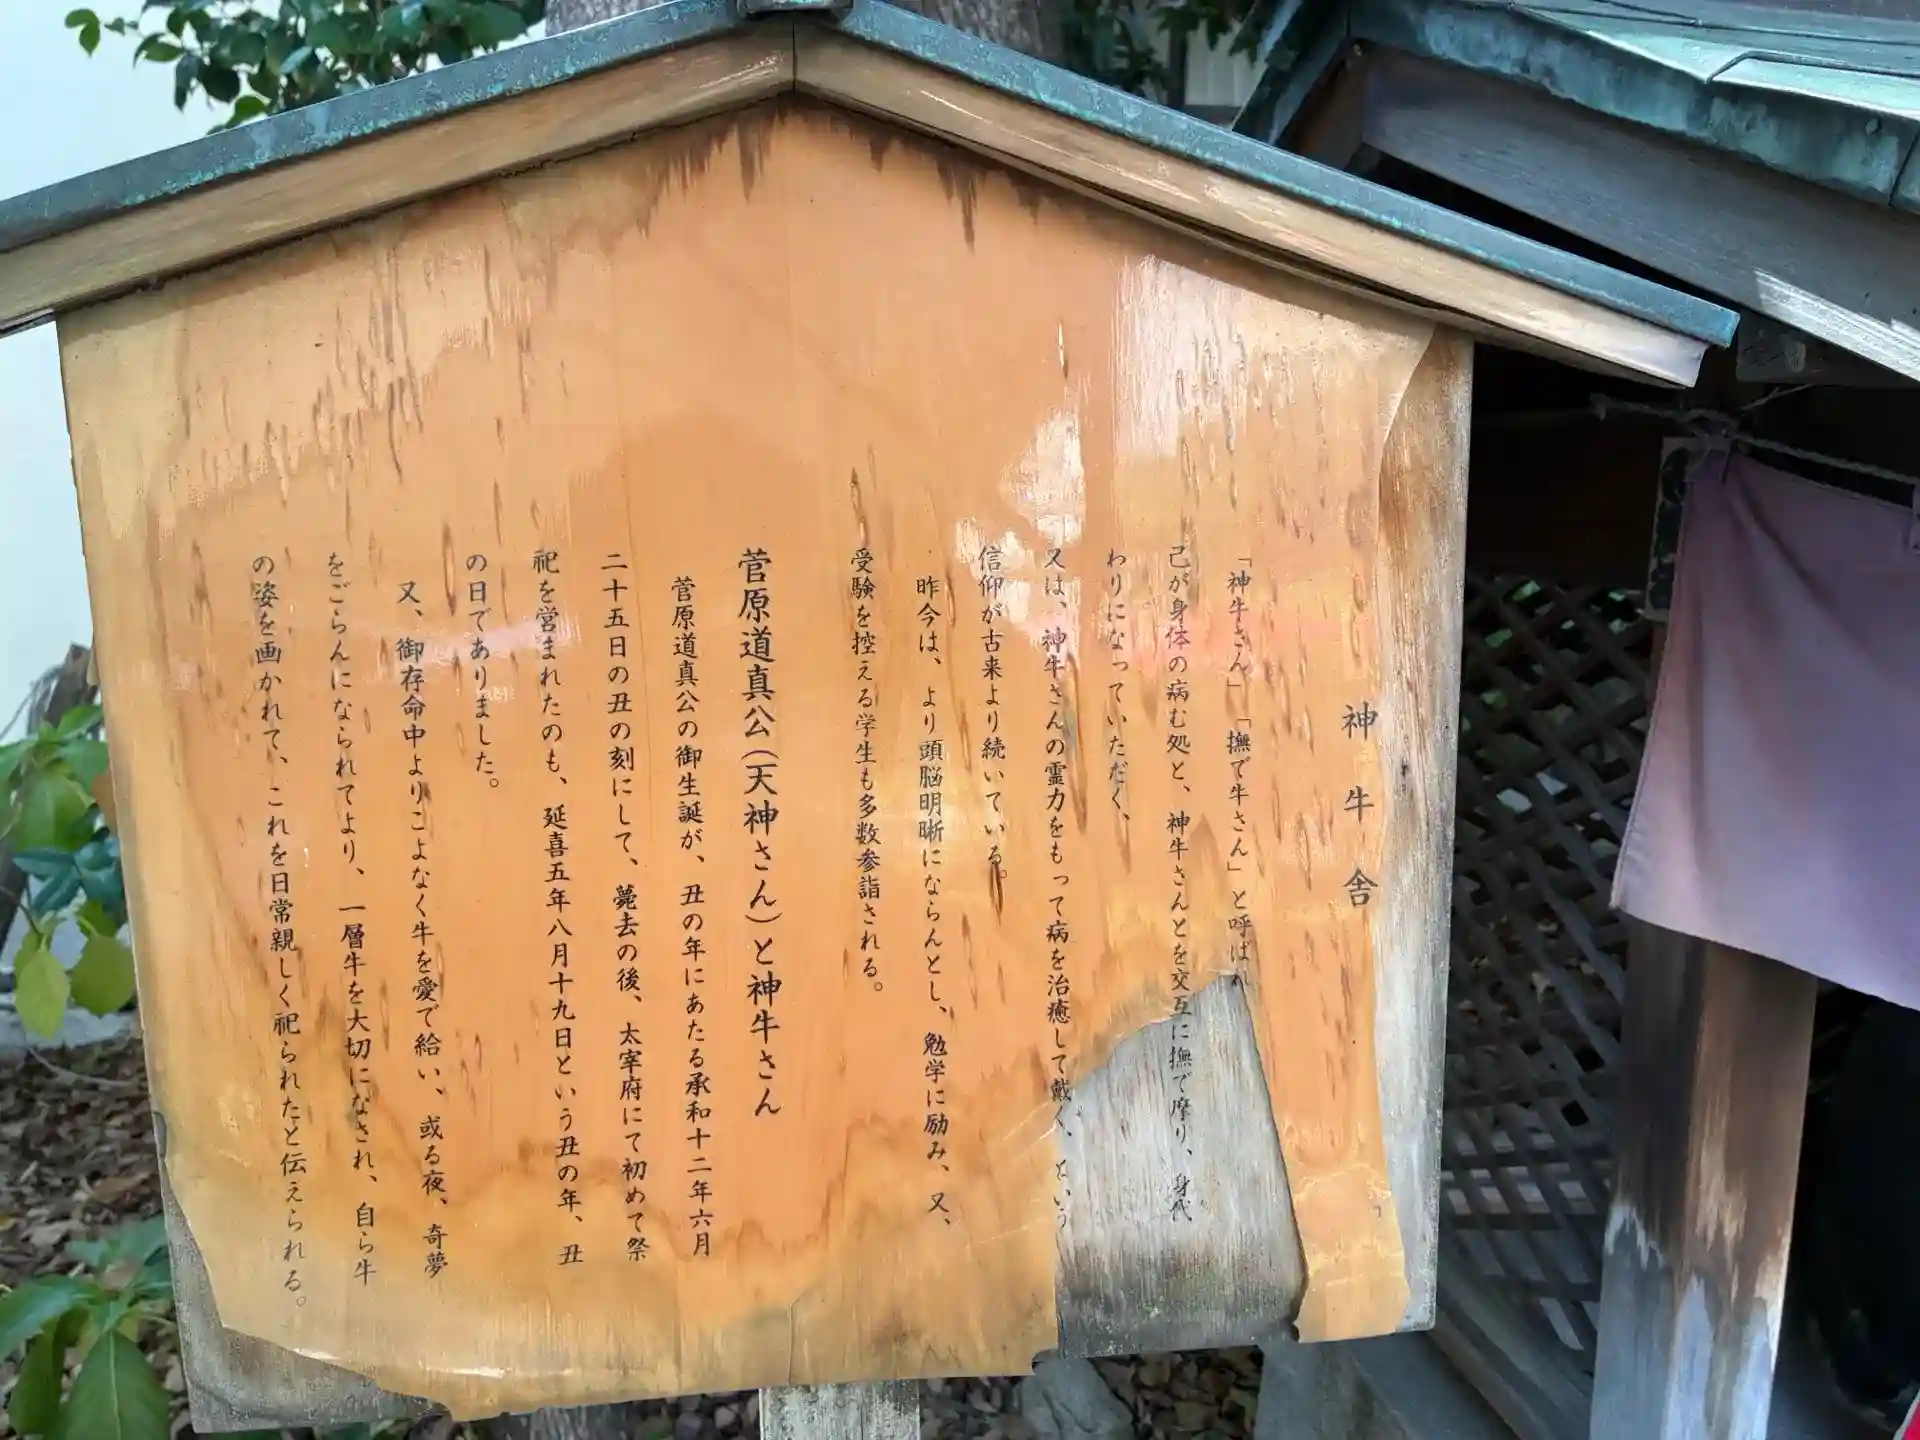 神牛舎
「神牛さん」「撫で牛さん」と呼ばれ
己が身体の病む処と、神牛さんとを交互に撫で摩り、身代
わりになっていただく、
又は、神牛さんの霊力をもって病を治癒して戴く、という
信仰が古来より続いている。
昨今は、より頭脳明晰にならんとし、勉学に励み、又、
受験を控える学生も多数参詣される。
菅原道真公(天神さん)と神牛さん
菅原道真公の御生誕が、丑の年にあたる承和十二年六月
二十五日の丑の刻にして、薨去の後、太宰府にて初めて祭
祀を営まれたのも、延喜五年八月十九日という丑の年、丑
の日でありました。
又、御存命中よりこよなく牛を愛で給い、或る夜、奇夢
をごらんになられてより、一層牛を大切になされ、自ら牛
の姿を画かれて、これを日常親しく祀られたと伝えられる。